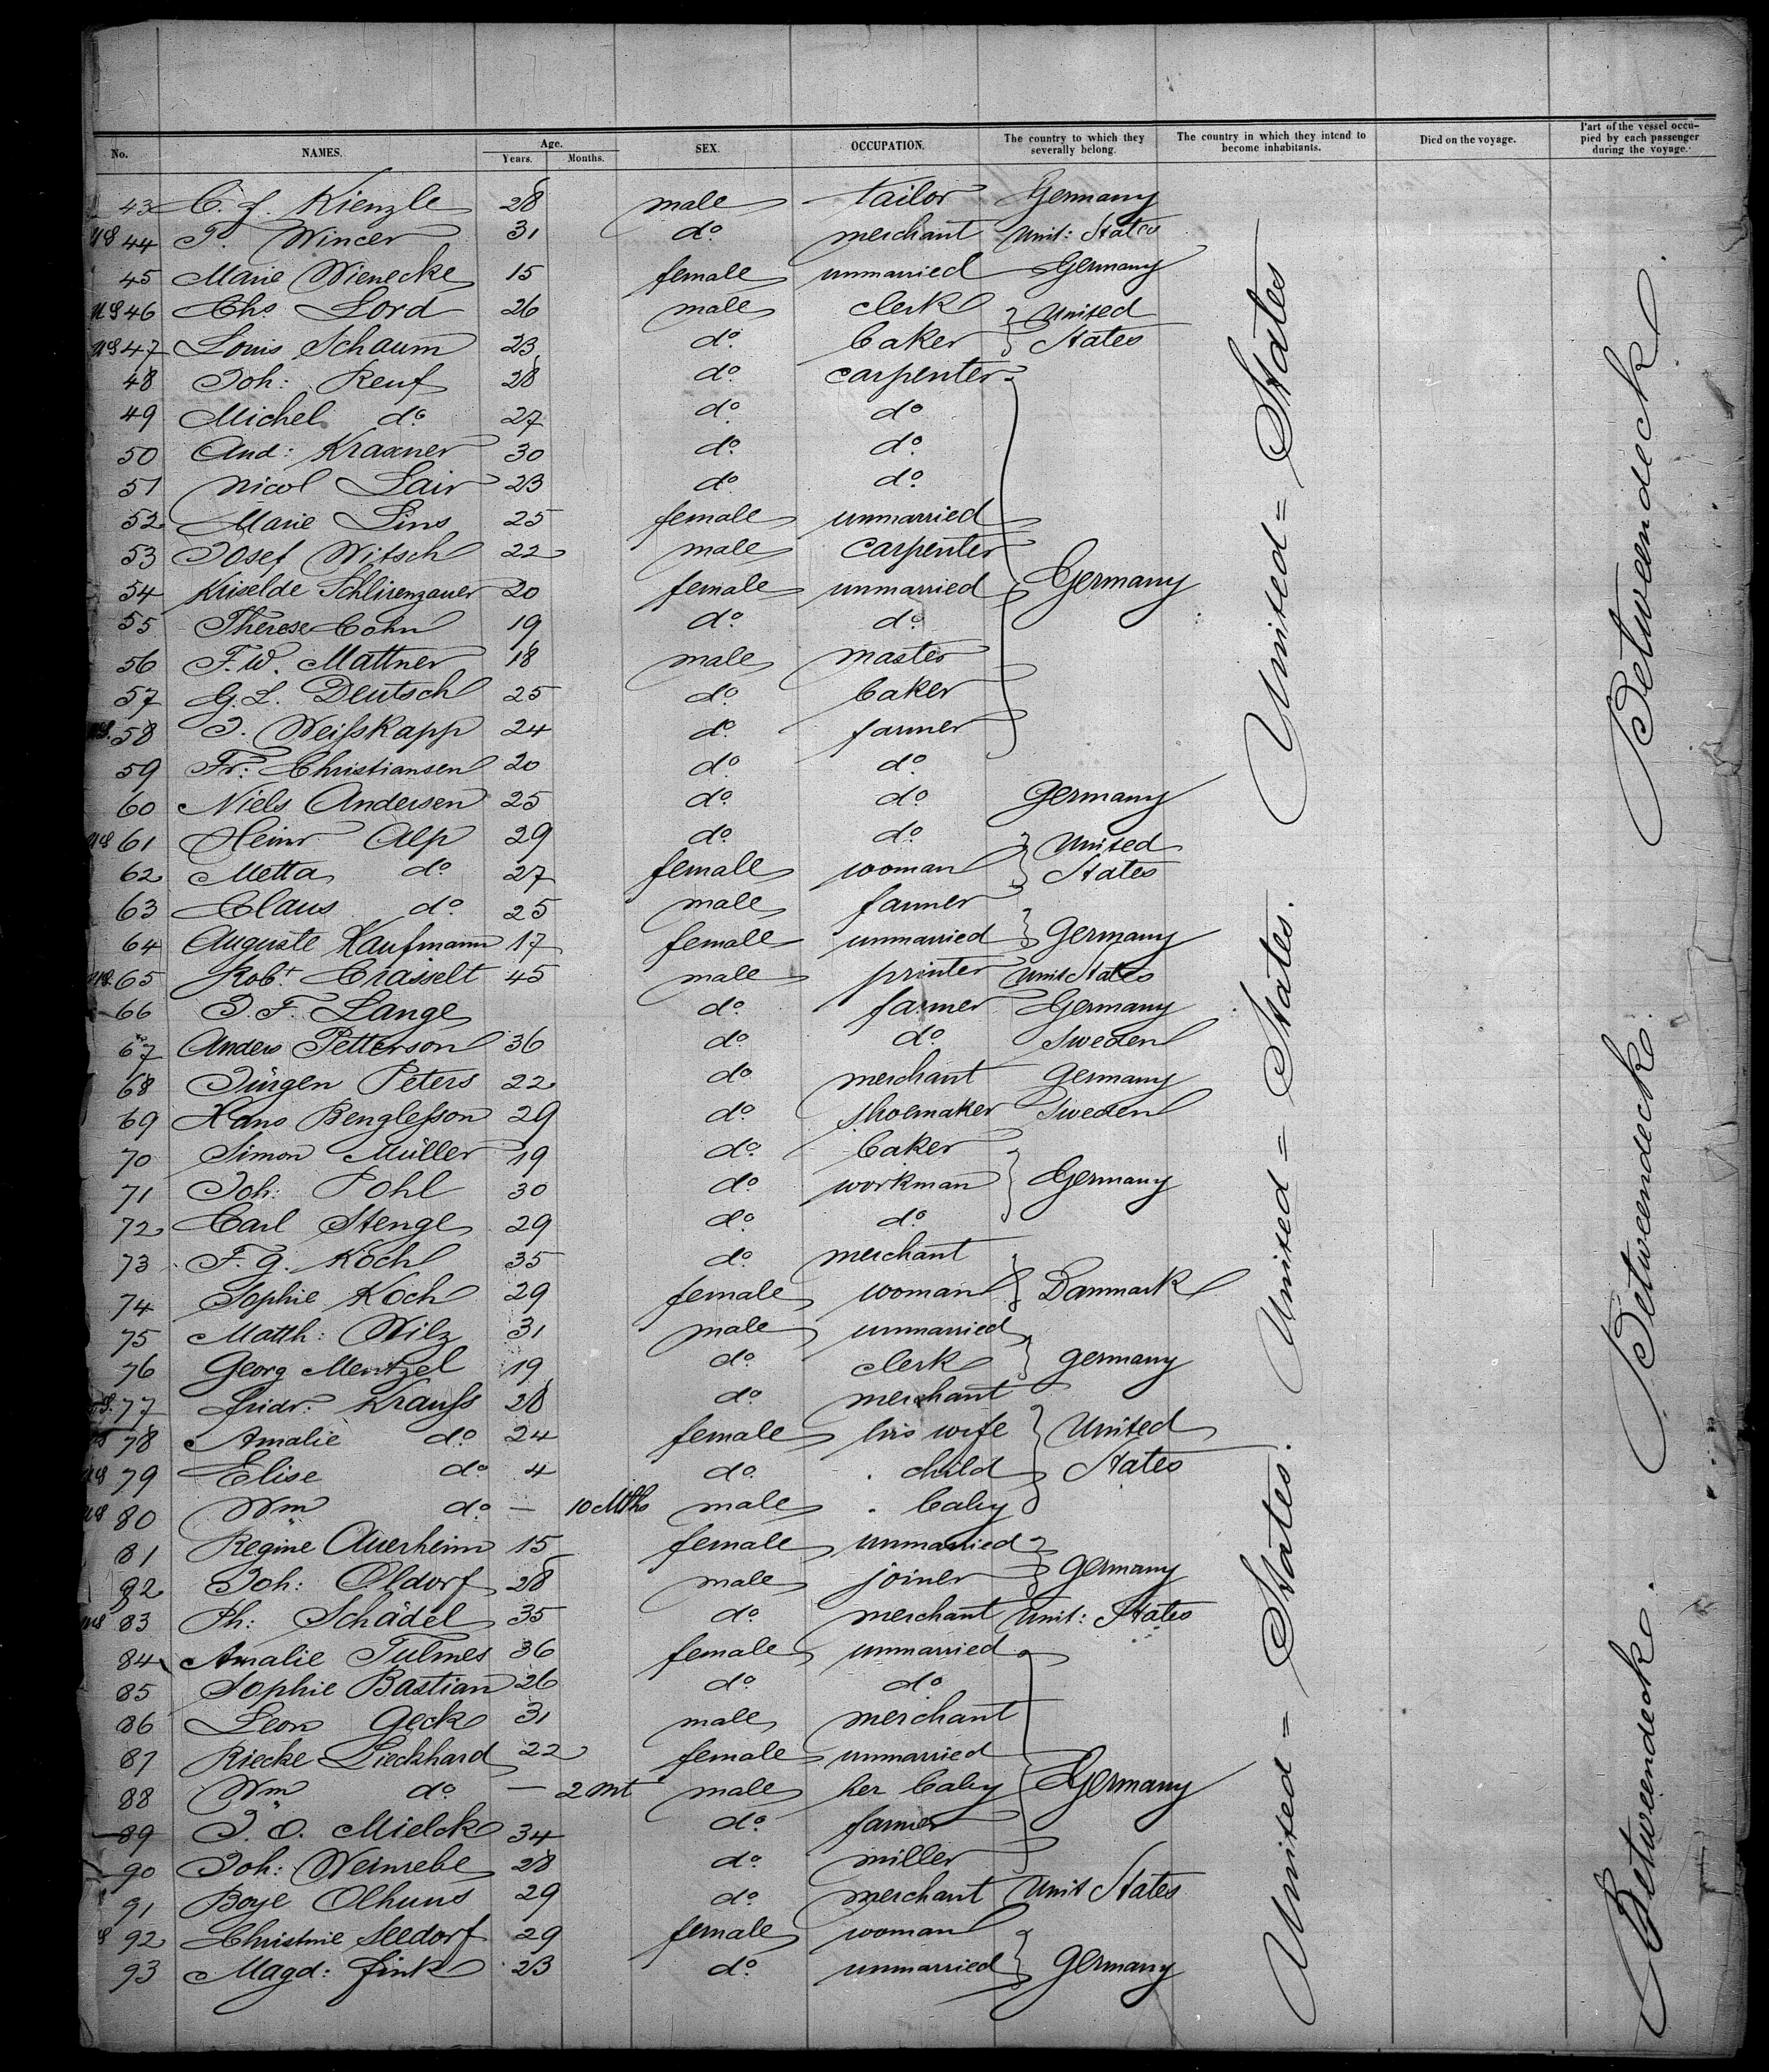 No. NAMES. Age. Years. Months. SEX. OCCUPATION. The country to which they severally belong. The country in which they intend to become inhabitants. Died on the voyage. Part of the vessel occupied by each passenger during the voyage.
43 C. F. Kienzle 28 male tailor Germany
US 44 P. Wincer 31 do merchant Unit: States
45 Marie Wienecke 15 female unmarried Germany
US 46 Chs Lord 26 male clerk } United
US 47 Louis Schaum 23 do baker } States
48 Joh: Reuf 28 do carpenter
49 Michel do 27 do do
50 And: Kraxner 30 do do
51 Nicol Lair 23 do do
52 Marie Lins 25 female unmarried
53 Josef Witsch 22 male carpenter
54 Kriselde Schlirenzauer 20 female unmarried } Germany
55 Therese Cohn 19 do do
56 F. W. Mattner 18 male master
57 G. L. Deutsch 25 do baker
US. 58 J. Weißkapp 24 do farmer
59 Fr: Christiansen 20 do do
60 Niels Andersen 25 do do Germany
US 61 Heinr Alp 29 do do } United
62 Metta do 27 female woman } States
63 Claus do 25 male farmer
64 Auguste Kaufmann 17 female unmarried } Germany
US. 65 Robt Crasselt 45 male printer Unit States
66 J. F. Lange do farmer Germany
67 Anders Petterson 36 do do Sweden
68 Jürgen Peters 22 do merchant Germany
69 Hans Benglesson 29 do shoemaker Sweden
70 Simon Müller 19 do baker
71 Joh: Pohl 30 do workman } Germany
72 Carl Stenge 29 do do
73 F. G. Koch 35 do merchant
74 Sophie Koch 29 female woman } Danmark
75 Matth: Wilz 31 male unmarried
76 Georg Mentzel 19 do clerk } Germany
US. 77 Fridr. Krauss 28 do merchant
US 78 Amalie do 24 female his wife } United
US 79 Elise do 4 do child } States
US 80 Wm do — 10 Mths male baby
81 Regine Auerheim 15 female unmarried
82 Joh: Oldorf 28 male joiner } Germany
US 83 Ph: Schädel 35 do merchant Unit: States
84 Amalie Tulmes 36 female unmarried
85 Sophie Bastian 26 do do
86 Leon Geck 31 male merchant
87 Riecke Lieckhard 22 female unmarried
88 Wm do — 2 mt male her baby } Germany
89 J. O. Mielck 34 do farmer
90 Joh: Weinrebe 28 do miller
91 Boye Olhuus 29 do merchant Unit States
92 Christine Seedorf 29 female woman
93 Magd: Fink 23 do unmarried } Germany
United = States
United = States.
United = States.
Betweendeck.
Betweendeck.
Betweendeck.